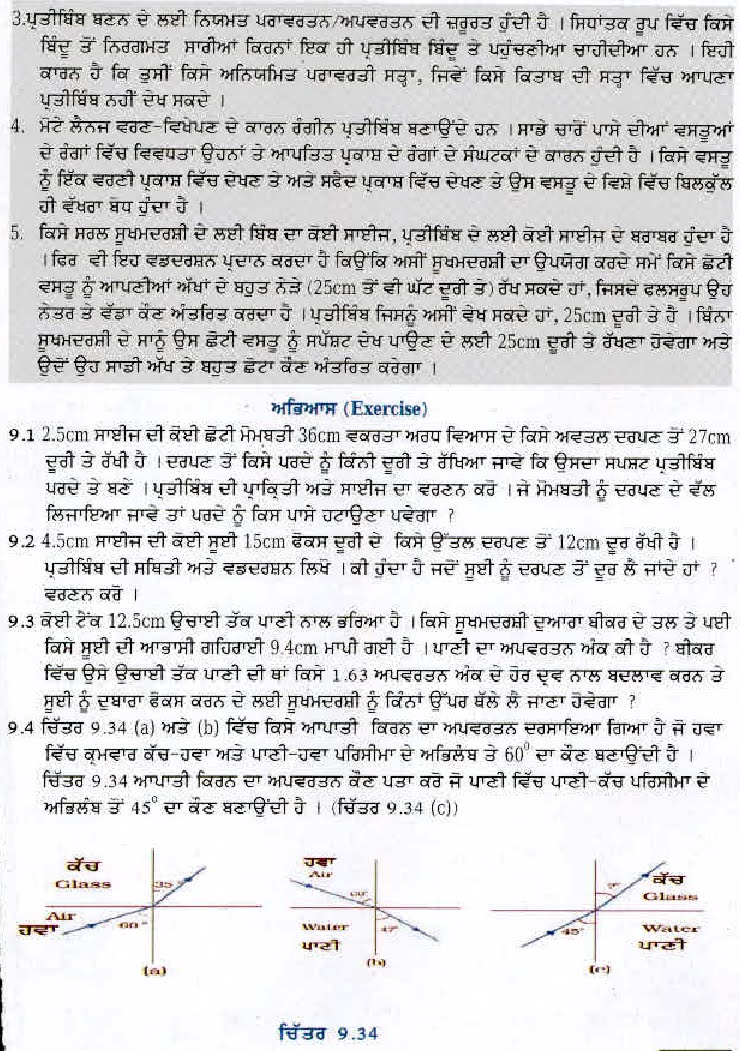 3.ਪ੍ਰਤੀਬਿੰਬ ਬਣਨ ਦੇ ਲਈ ਨਿਯਮਤ ਪਰਾਵਰਤਨ/ਅਪਵਰਤਨ ਦੀ ਜ਼ਰੂਰਤ ਹੁੰਦੀ ਹੈ । ਸਿਧਾਂਤਕ ਰੂਪ ਵਿੱਚ ਕਿਸੇ
ਬਿੰਦੂ ਤੋਂ ਨਿਰਗਮਤ ਸਾਰੀਆਂ ਕਿਰਨਾਂ ਇਕ ਹੀ ਪ੍ਰਤੀਬਿੰਬ ਬਿੰਦੂ ਤੇ ਪਹੁੰਚਣੀਆ ਚਾਹੀਦੀਆ ਹਨ । ਇਹੀ
ਕਾਰਨ ਹੈ ਕਿ ਤੁਸੀਂ ਕਿਸੇ ਅਨਿਯਮਿਤ ਪਰਾਵਰਤੀ ਸਤ੍ਹਾ, ਜਿਵੇਂ ਕਿਸੇ ਕਿਤਾਬ ਦੀ ਸਤ੍ਹਾ ਵਿੱਚ ਆਪਣਾ
ਪ੍ਰਤੀਬਿੰਬ ਨਹੀਂ ਦੇਖ ਸਕਦੇ ।
4. ਮੋਟੇ ਲੈਨਜ ਵਰਣ-ਵਿਖੇਪਣ ਦੇ ਕਾਰਨ ਰੰਗੀਨ ਪ੍ਰਤੀਬਿੰਬ ਬਣਾਉਂਦੇ ਹਨ । ਸਾਡੇ ਚਾਰੋਂ ਪਾਸੇ ਦੀਆਂ ਵਸਤੂਆਂ
ਦੇ ਰੰਗਾਂ ਵਿੱਚ ਵਿਵਧਤਾ ਉਹਨਾਂ ਤੇ ਆਪਤਿਤ ਪ੍ਰਕਾਸ਼ ਦੇ ਰੰਗਾਂ ਦੇ ਸੰਘਟਕਾਂ ਦੇ ਕਾਰਨ ਹੁੰਦੀ ਹੈ । ਕਿਸੇ ਵਸਤੂ
ਨੂੰ ਇੱਕ ਵਰਣੀ ਪ੍ਰਕਾਸ਼ ਵਿੱਚ ਦੇਖਣ ਤੇ ਅਤੇ ਸਫੈਦ ਪ੍ਰਕਾਸ਼ ਵਿੱਚ ਦੇਖਣ ਤੇ ਉਸ ਵਸਤੂ ਦੇ ਵਿਸ਼ੇ ਵਿੱਚ ਬਿਲਕੁੱਲ
ਹੀ ਵੱਖਰਾ ਬੋਧ ਹੁੰਦਾ ਹੈ ।
5. ਕਿਸੇ ਸਰਲ ਸੂਖਮਦਰਸ਼ੀ ਦੇ ਲਈ ਬਿੰਬ ਦਾ ਕੋਈ ਸਾਈਜ, ਪ੍ਰਤੀਬਿੰਬ ਦੇ ਲਈ ਕੋਈ ਸਾਈਜ ਦੇ ਬਰਾਬਰ ਹੁੰਦਾ ਹੈ
। ਫਿਰ ਵੀ ਇਹ ਵਡਦਰਸ਼ਨ ਪ੍ਰਦਾਨ ਕਰਦਾ ਹੈ ਕਿਉਂਕਿ ਅਸੀਂ ਸੂਖਮਦਰਸ਼ੀ ਦਾ ਉਪਯੋਗ ਕਰਦੇ ਸਮੇਂ ਕਿਸੇ ਛੋਟੀ
ਵਸਤੂ ਨੂੰ ਆਪਣੀਆਂ ਅੱਖਾਂ ਦੇ ਬਹੁਤ ਨੇੜੇ (25cm ਤੋਂ ਵੀ ਘੱਟ ਦੂਰੀ ਤੇ) ਰੱਖ ਸਕਦੇ ਹਾਂ, ਜਿਸਦੇ ਫਲਸਰੂਪ ਉਹ
ਨੇਤਰ ਤੇ ਵੱਡਾ ਕੋਣ ਅੰਤਰਿਤ ਕਰਦਾ ਹੈ । ਪ੍ਰਤੀਬਿੰਬ ਜਿਸਨੂੰ ਅਸੀਂ ਵੇਖ ਸਕਦੇ ਹਾਂ, 25cm ਦੂਰੀ ਤੇ ਹੈ । ਬਿੰਨਾ
ਸੂਖਮਦਰਸ਼ੀ ਦੇ ਸਾਨੂੰ ਉਸ ਛੋਟੀ ਵਸਤੂ ਨੂੰ ਸਪੱਸ਼ਟ ਦੇਖ ਪਾਉਣ ਦੇ ਲਈ 25cm ਦੂਰੀ ਤੇ ਰੱਖਣਾ ਹੋਵੇਗਾ ਅਤੇ
ਉਦੋਂ ਉਹ ਸਾਡੀ ਅੱਖ ਤੇ ਬਹੁਤ ਛੋਟਾ ਕੋਣ ਅੰਤਰਿਤ ਕਰੇਗਾ ।
ਅਭਿਆਸ (Exercise)
9.1 2.5cm ਸਾਈਜ ਦੀ ਕੋਈ ਛੋਟੀ ਮੋਮਬਤੀ 36cm ਵਕਰਤਾ ਅਰਧ ਵਿਆਸ ਦੇ ਕਿਸੇ ਅਵਤਲ ਦਰਪਣ ਤੋਂ 27cm
ਦੂਰੀ ਤੇ ਰੱਖੀ ਹੈ । ਦਰਪਣ ਤੋਂ ਕਿਸੇ ਪਰਦੇ ਨੂੰ ਕਿੰਨੀ ਦੂਰੀ ਤੇ ਰੱਖਿਆ ਜਾਵੇ ਕਿ ਉਸਦਾ ਸਪਸ਼ਟ ਪ੍ਰਤੀਬਿੰਬ
ਪਰਦੇ ਤੇ ਬਣੇ । ਪ੍ਰਤੀਬਿੰਬ ਦੀ ਪ੍ਰਾਕ੍ਰਿਤੀ ਅਤੇ ਸਾਈਜ ਦਾ ਵਰਣਨ ਕਰੋ । ਜੇ ਮੋਮਬਤੀ ਨੂੰ ਦਰਪਣ ਦੇ ਵੱਲ
ਲਿਜਾਇਆ ਜਾਵੇ ਤਾਂ ਪਰਦੇ ਨੂੰ ਕਿਸ ਪਾਸੇ ਹਟਾਉਣਾ ਪਵੇਗਾ ?
9.2 4.5cm ਸਾਈਜ ਦੀ ਕੋਈ ਸੂਈ 15cm ਫੋਕਸ ਦੂਰੀ ਦੇ ਕਿਸੇ ਉੱਤਲ ਦਰਪਣ ਤੋਂ 12cm ਦੂਰ ਰੱਖੀ ਹੈ ।
ਪ੍ਰਤੀਬਿੰਬ ਦੀ ਸਥਿਤੀ ਅਤੇ ਵਡਦਰਸ਼ਨ ਲਿਖੋ । ਕੀ ਹੁੰਦਾ ਹੈ ਜਦੋਂ ਸੂਈ ਨੂੰ ਦਰਪਣ ਤੋਂ ਦੂਰ ਲੈ ਜਾਂਦੇ ਹਾਂ ?
ਵਰਣਨ ਕਰੋ ।
9.3 ਕੋਈ ਟੈਂਕ 12.5cm ਉਚਾਈ ਤੱਕ ਪਾਣੀ ਨਾਲ ਭਰਿਆ ਹੈ । ਕਿਸੇ ਸੂਖਮਦਰਸ਼ੀ ਦੁਆਰਾ ਬੀਕਰ ਦੇ ਤਲ ਤੇ ਪਈ
ਕਿਸੇ ਸੂਈ ਦੀ ਆਭਾਸੀ ਗਹਿਰਾਈ 9.4cm ਮਾਪੀ ਗਈ ਹੈ । ਪਾਣੀ ਦਾ ਅਪਵਰਤਨ ਅੰਕ ਕੀ ਹੈ ? ਬੀਕਰ
ਵਿੱਚ ਉਸੇ ਉਚਾਈ ਤੱਕ ਪਾਣੀ ਦੀ ਥਾਂ ਕਿਸੇ 1.63 ਅਪਵਰਤਨ ਅੰਕ ਦੇ ਹੋਰ ਦ੍ਰਵ ਨਾਲ ਬਦਲਾਵ ਕਰਨ ਤੇ
ਸੂਈ ਨੂੰ ਦੁਬਾਰਾ ਫੋਕਸ ਕਰਨ ਦੇ ਲਈ ਸੂਖਮਦਰਸ਼ੀ ਨੂੰ ਕਿੰਨਾਂ ਉੱਪਰ ਥੱਲੇ ਲੈ ਜਾਣਾ ਹੋਵੇਗਾ ?
9.4 ਚਿੱਤਰ 9.34 (a) ਅਤੇ (b) ਵਿੱਚ ਕਿਸੇ ਆਪਾਤੀ ਕਿਰਨ ਦਾ ਅਪਵਰਤਨ ਦਰਸਾਇਆ ਗਿਆ ਹੈ ਜੋ ਹਵਾ
ਵਿੱਚ ਕ੍ਰਮਵਾਰ ਕੱਚ-ਹਵਾ ਅਤੇ ਪਾਣੀ-ਹਵਾ ਪਰਿਸੀਮਾ ਦੇ ਅਭਿਲੰਬ ਤੇ 60⁰ ਦਾ ਕੋਣ ਬਣਾਉਂਦੀ ਹੈ ।
ਚਿੱਤਰ 9.34 ਆਪਾਤੀ ਕਿਰਨ ਦਾ ਅਪਵਰਤਨ ਕੋਣ ਪਤਾ ਕਰੋ ਜੋ ਪਾਣੀ ਵਿੱਚ ਪਾਣੀ-ਕੱਚ ਪਰਿਸੀਮਾ ਦੇ
ਅਭਿਲੰਬ ਤੋਂ 45° ਦਾ ਕੋਣ ਬਣਾਉਂਦੀ ਹੈ । (ਚਿੱਤਰ 9.34 (c))
ਕੱਚ
Glass
35
Air
ਹਵਾ
60
(a)
ਹਵਾ
Air
60
Water
ਪਾਣੀ
47
(b)
ਕੱਚ
Glass
Water
ਪਾਣੀ
45
(c)
ਚਿੱਤਰ 9.34